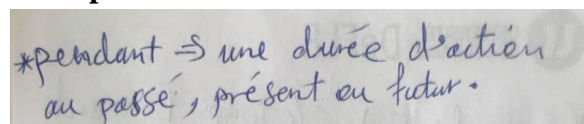 *pendant ⇒ une durée d'action
au passé, présent ou futur.